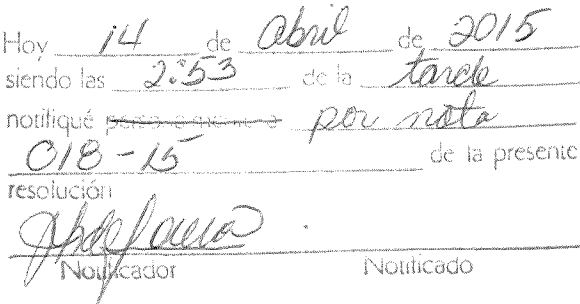 Hoy 14 de abril de 2015
siendo las 2:53 de la tarde
notifiqué personalmente a por nota
018-15 de la presente
resolución
Notificador Notificado